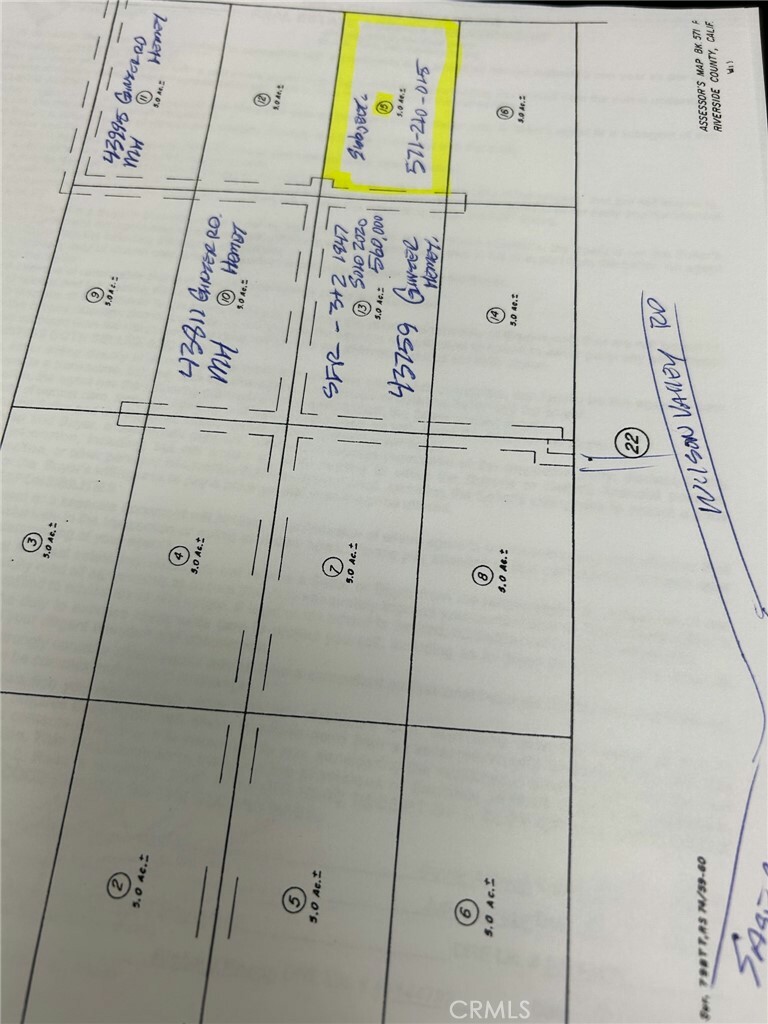 ASSESSOR'S MAP BK 571 P
RIVERSIDE COUNTY, CALIF.
43995 GINGER RD
HEMET
MH
11
5.0 Ac.±
12
5.0 Ac.±
Subject
15
5.0 Ac.±
571-210-015
16
5.0 Ac.±
9
5.0 Ac.±
43811 GINGER RD.
Hemet
MH
10
5.0 Ac.±
SFR - 3+2 1947
SOLD 2020
560,000
13
5.0 Ac.±
43759 GINGER
HEMET,
14
5.0 Ac.±
WILSON VALLEY RD
22
3
5.0 Ac.±
4
5.0 Ac.±
7
5.0 Ac.±
8
5.0 Ac.±
2
5.0 Ac.±
5
5.0 Ac.±
6
5.0 Ac.±
CRMLS